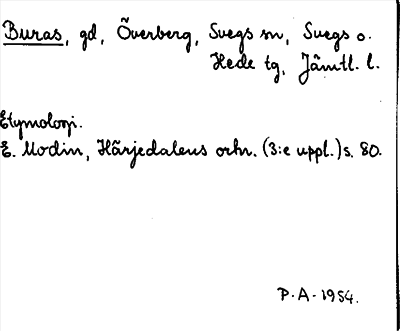 Buras, gd, Överberg, Svegs sn, Svegs o.
Hede tg, Jämtl. l.
Etymologi.
E. Modin, Härjedalens ortn. (3:e uppl.) s. 80.
P.A. 1954.